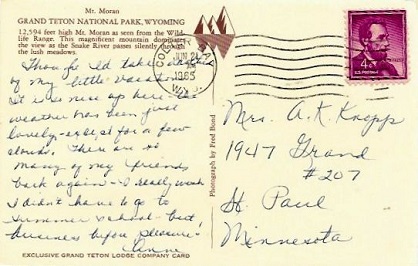 Mr. Moran
GRAND TETON NATIONAL PARK, WYOMING
12,594 feet high Mt. Moran as seen from the Wild-
life Range. This magnificent mountain dominates
the view as the Snake River passes silently through
the lush meadows.
Thought I'd take
of my little vacation
It is nice up here - the
weather has been just
lovely - except for a few
clouds. There are so
many of my friends
back again - I really wish
I didn't have to go to
summer school - but
business before pleasure!
Anne
EXCLUSIVE GRAND TETON LODGE COMPANY CARD
Photograph by Fred Bond
COLTER BAY
JUN 21
1965
WYO.
4¢
U.S. POSTAGE
Mrs. A. K. Knopp
1947 Grand
#207
St. Paul
Minnesota